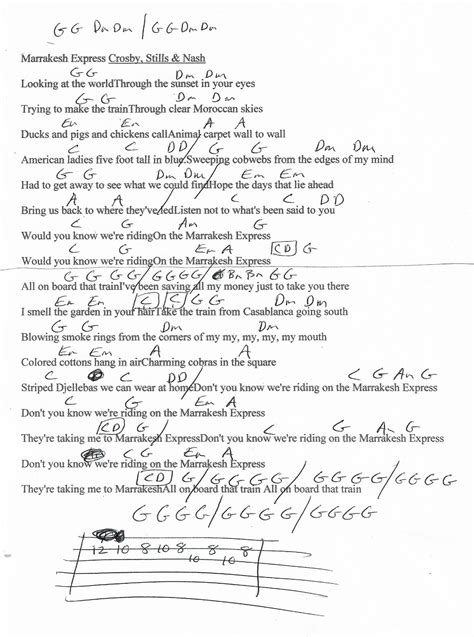 G G Dm Dm / G G Dm Dm
Marrakesh Express Crosby, Stills & Nash
G G Dm Dm
Looking at the worldThrough the sunset in your eyes
G G Dm Dm
Trying to make the trainThrough clear Moroccan skies
Em Em A A
Ducks and pigs and chickens callAnimal carpet wall to wall
C C D D / G G Dm Dm
American ladies five foot tall in blue.Sweeping cobwebs from the edges of my mind
G G Dm Dm / Em Em
Had to get away to see what we could findHope the days that lie ahead
A A C C D D
Bring us back to where they've ledListen not to what's been said to you
C G Am G
Would you know we're ridingOn the Marrakesh Express
C G Em A CD G
Would you know we're ridingOn the Marrakesh Express
G G G G / G G G G / Bm Bm G G
All on board that trainI've been saving all my money just to take you there
Em Em C C G G Dm Dm
I smell the garden in your hairTake the train from Casablanca going south
G G Dm Dm
Blowing smoke rings from the corners of my my, my, my, my mouth
Em Em A A
Colored cottons hang in airCharming cobras in the square
C C D D / C G Am G
Striped Djellebas we can wear at homeDon't you know we're riding on the Marrakesh Express
C G Em A
Don't you know we're riding on the Marrakesh Express
CD G C G Am G
They're taking me to Marrakesh ExpressDon't you know we're riding on the Marrakesh Express
C G Em A
Don't you know we're riding on the Marrakesh Express
CD G / G G G G / G G G G / G G G G
They're taking me to MarrakeshAll on board that train All on board that train
G G G G / G G G G / G G G G
12 10 8 10 8 8 8
10 10